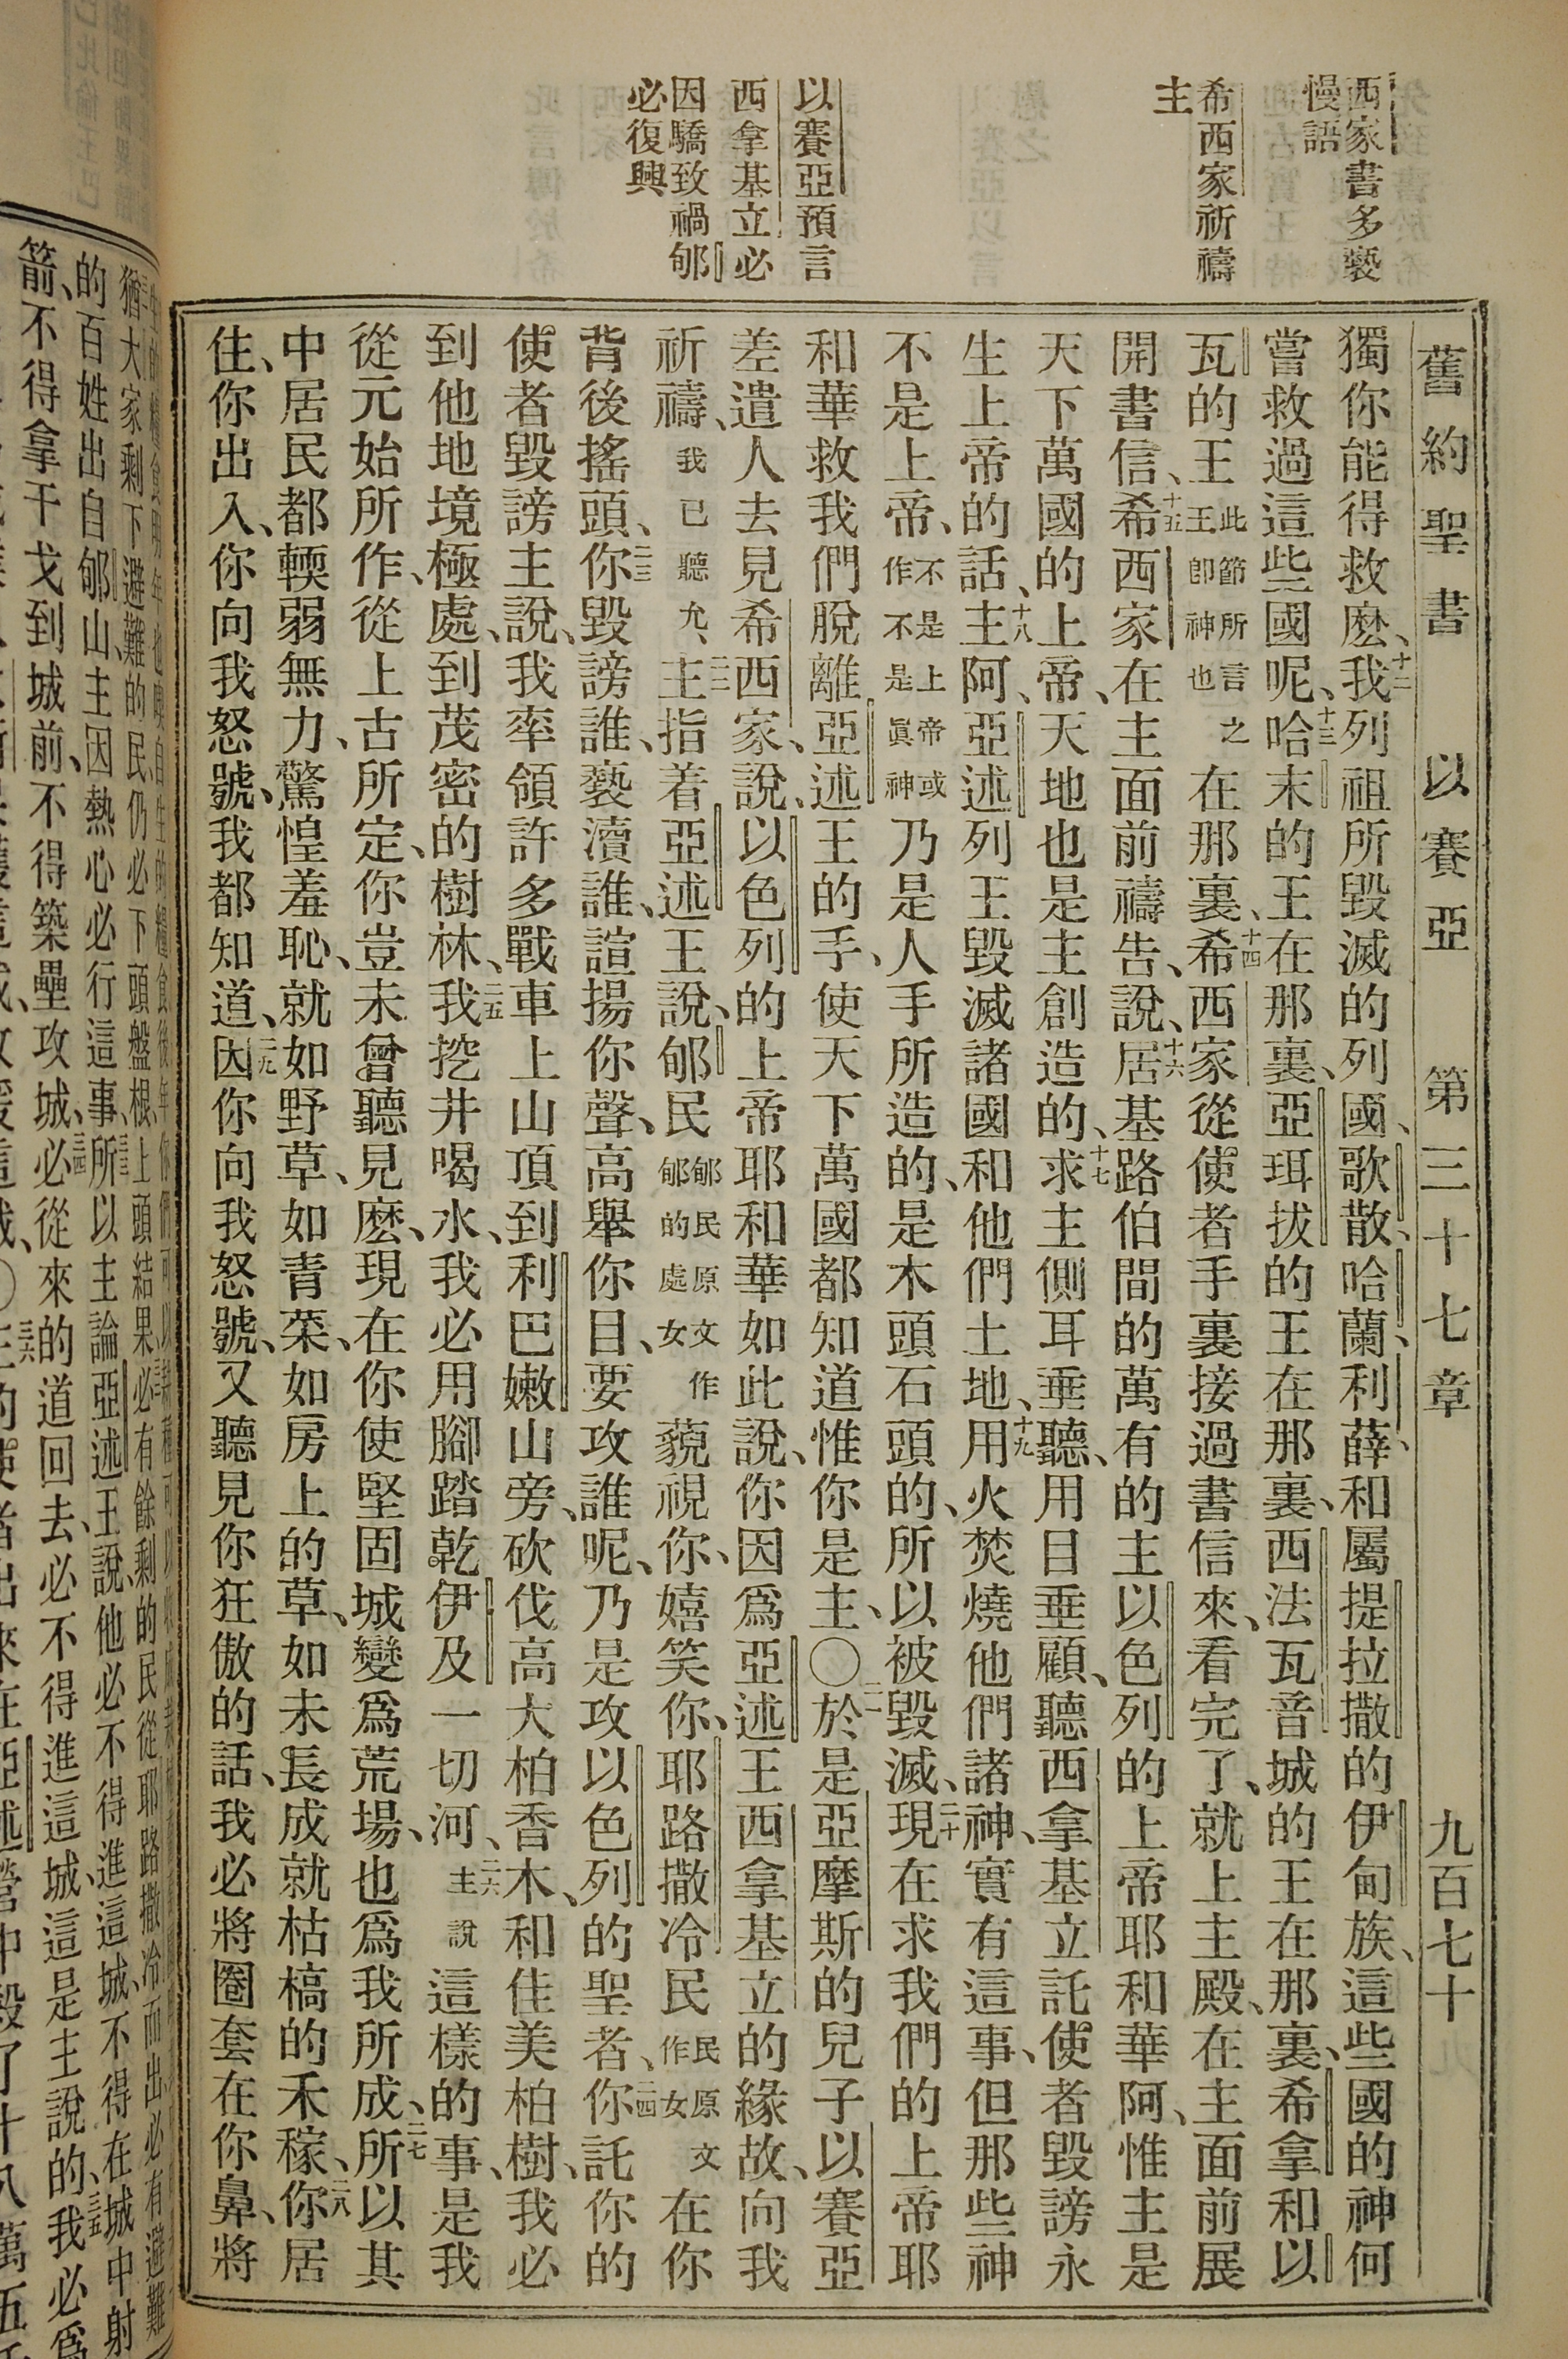 西家書多褻
慢語
希西家祈禱
主
以賽亞預言
西拿基立必
因驕致禍郇
必復興
舊約聖書 以賽亞 第三十七章 九百七十
獨你能得救麽、十二我列祖所毀滅的列國、歌散、哈蘭、利薛、和屬提拉撒的伊甸族、這些國的神何
嘗救過這些國呢、十三哈末的王在那裏、亞珥拔的王在那裏、西法瓦音城的王在那裏、希拿和以
瓦的王此節所言之王卽神也在那裏、十四希西家從使者手裏接過書信來、看完了、就上主殿、在主面前展
開書信、十五希西家在主面前禱告、說、十六居基路伯間的萬有的主以色列的上帝耶和華阿、惟主是
天下萬國的上帝、天地也是主創造的、十七求主側耳垂聽、用目垂顧、聽西拿基立託使者毀謗永
生上帝的話、十八主阿、亞述列王毀滅諸國和他們土地、十九用火焚燒他們諸神、實有這事、但那些神
不是上帝、不是上帝或作不是眞神乃是人手所造的、是木頭石頭的、所以被毀滅、二十現在求我們的上帝耶
和華救我們脫離亞述王的手、使天下萬國都知道惟你是主、〇二一於是亞摩斯的兒子以賽亞
差遣人去見希西家、說、以色列的上帝耶和華如此說、你因爲亞述王西拿基立的緣故、向我
祈禱、我已聽允、二二主指着亞述王說、郇民郇民原文作郇的處女藐視你、嬉笑你、耶路撒冷民民原文作女在你
背後搖頭、二三你毀謗誰、褻瀆誰、諠揚你聲、高舉你目、要攻誰呢、乃是攻以色列的聖者、二四你託你的
使者毀謗主說、我率領許多戰車上山頂到利巴嫩山旁、砍伐高大柏香木、和佳美柏樹、我必
到他地境極處、到茂密的樹林、二五我挖井喝水、我必用腳踏乾伊及一切河、二六主說這樣的事、是我
從元始所作、從上古所定、你豈未曾聽見麽、現在你使堅固城變爲荒場、也爲我所成、二七所以其
中居民都輭弱無力、驚惶羞恥、就如野草、如青菜、如房上的草、如未長成就枯槁的禾稼、二八你居
住、你出入、你向我怒號、我都知道、二九因你向我怒號、又聽見你狂傲的話、我必將圈套在你鼻、將
猶大家剩下避難的民、仍必下頭盤根、上頭結果、必有餘剩的民從耶路撒冷而出、必有避難
的百姓出自郇山、主因熱心必行這事、所以主論亞述王說、他必不得進這城、不得在城中射
箭、不得拿干戈到城前、不得築壘攻城、必從來的道回去、必不得進這城、這是主說的、我必爲